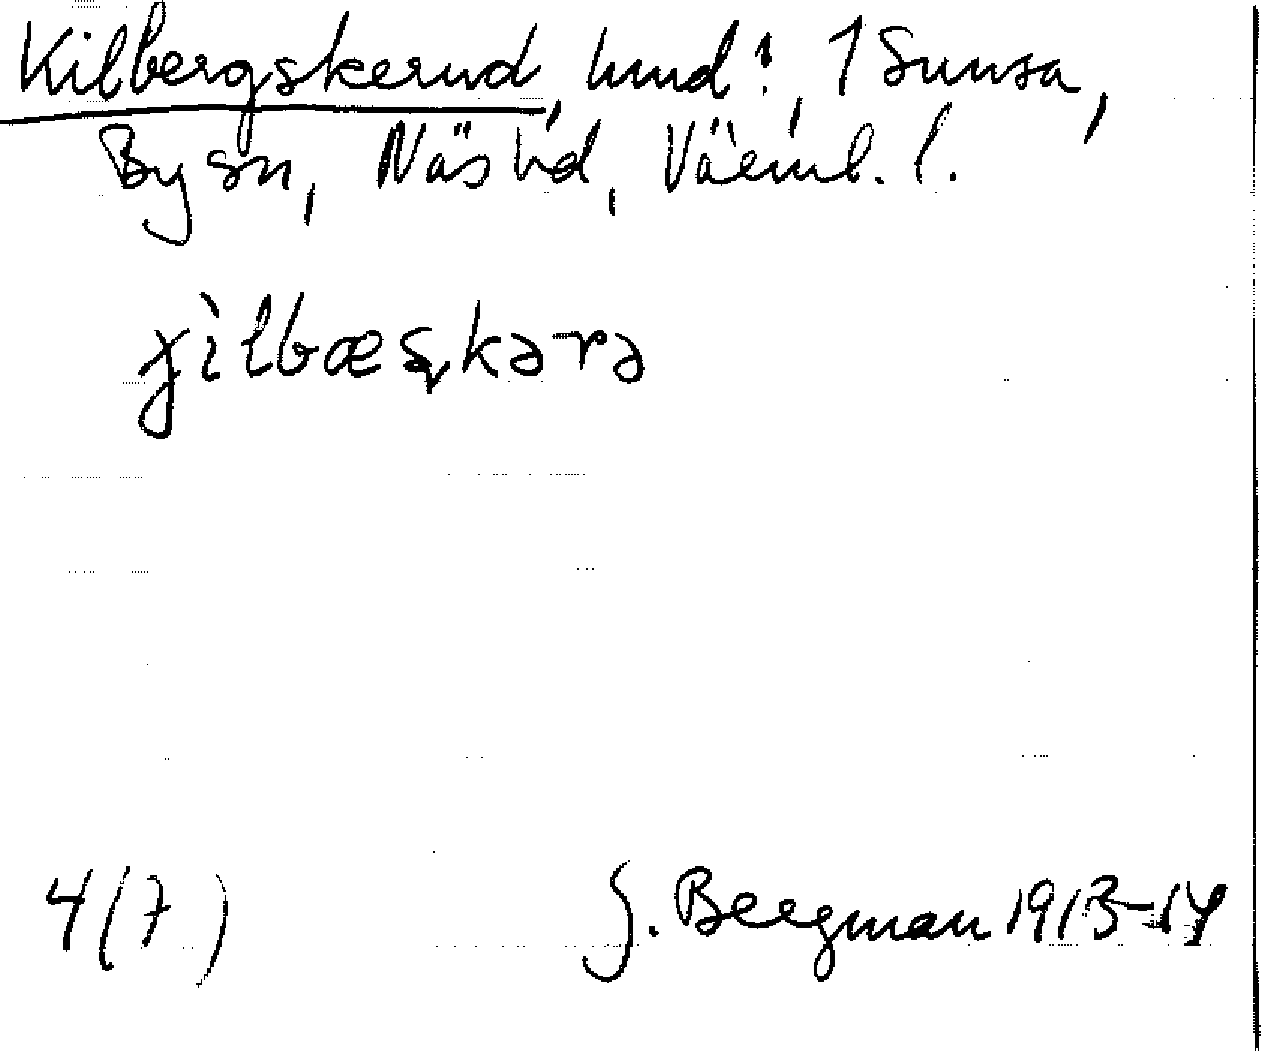 Kilbergskerud, hmd:, 1 Sunsa,
By sn, Näs hd, Värml. l.
jilbæskərə
4(7)
G. Bergman 1913-14